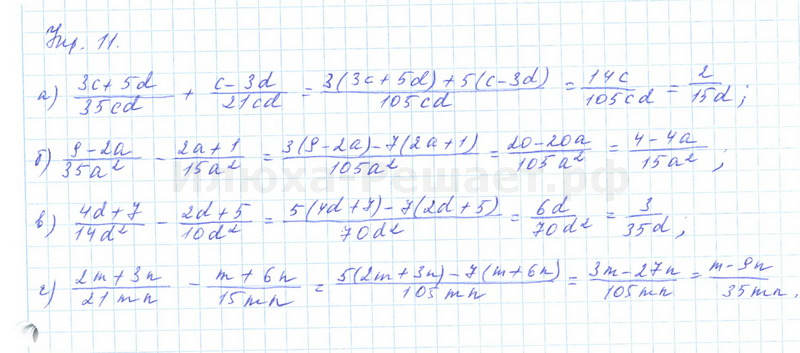 Упр. 11.
а) (3c + 5d)/(35cd) + (c − 3d)/(21cd) = (3(3c + 5d) + 5(c − 3d))/(105cd) = (14c)/(105cd) = 2/(15d);
б) (9 − 2a)/(35a²) − (2a + 1)/(15a²) = (3(9 − 2a) − 7(2a + 1))/(105a²) = (20 − 20a)/(105a²) = (4 − 4a)/(15a²);
Илюха-решает.рф
в) (4d + 7)/(14d²) − (2d + 5)/(10d²) = (5(4d + 7) − 7(2d + 5))/(70d²) = (6d)/(70d²) = 3/(35d);
г) (2m + 3n)/(21mn) − (m + 6n)/(15mn) = (5(2m + 3n) − 7(m + 6n))/(105mn) = (3m − 27n)/(105mn) = (m − 9n)/(35mn).